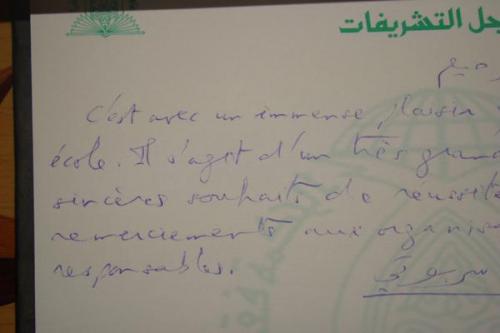 سجل التشريفات
C'est avec un immense plaisir
école. Il s'agit d'un très grand
sincères souhaits de réussite
remerciements aux organis
responsables.